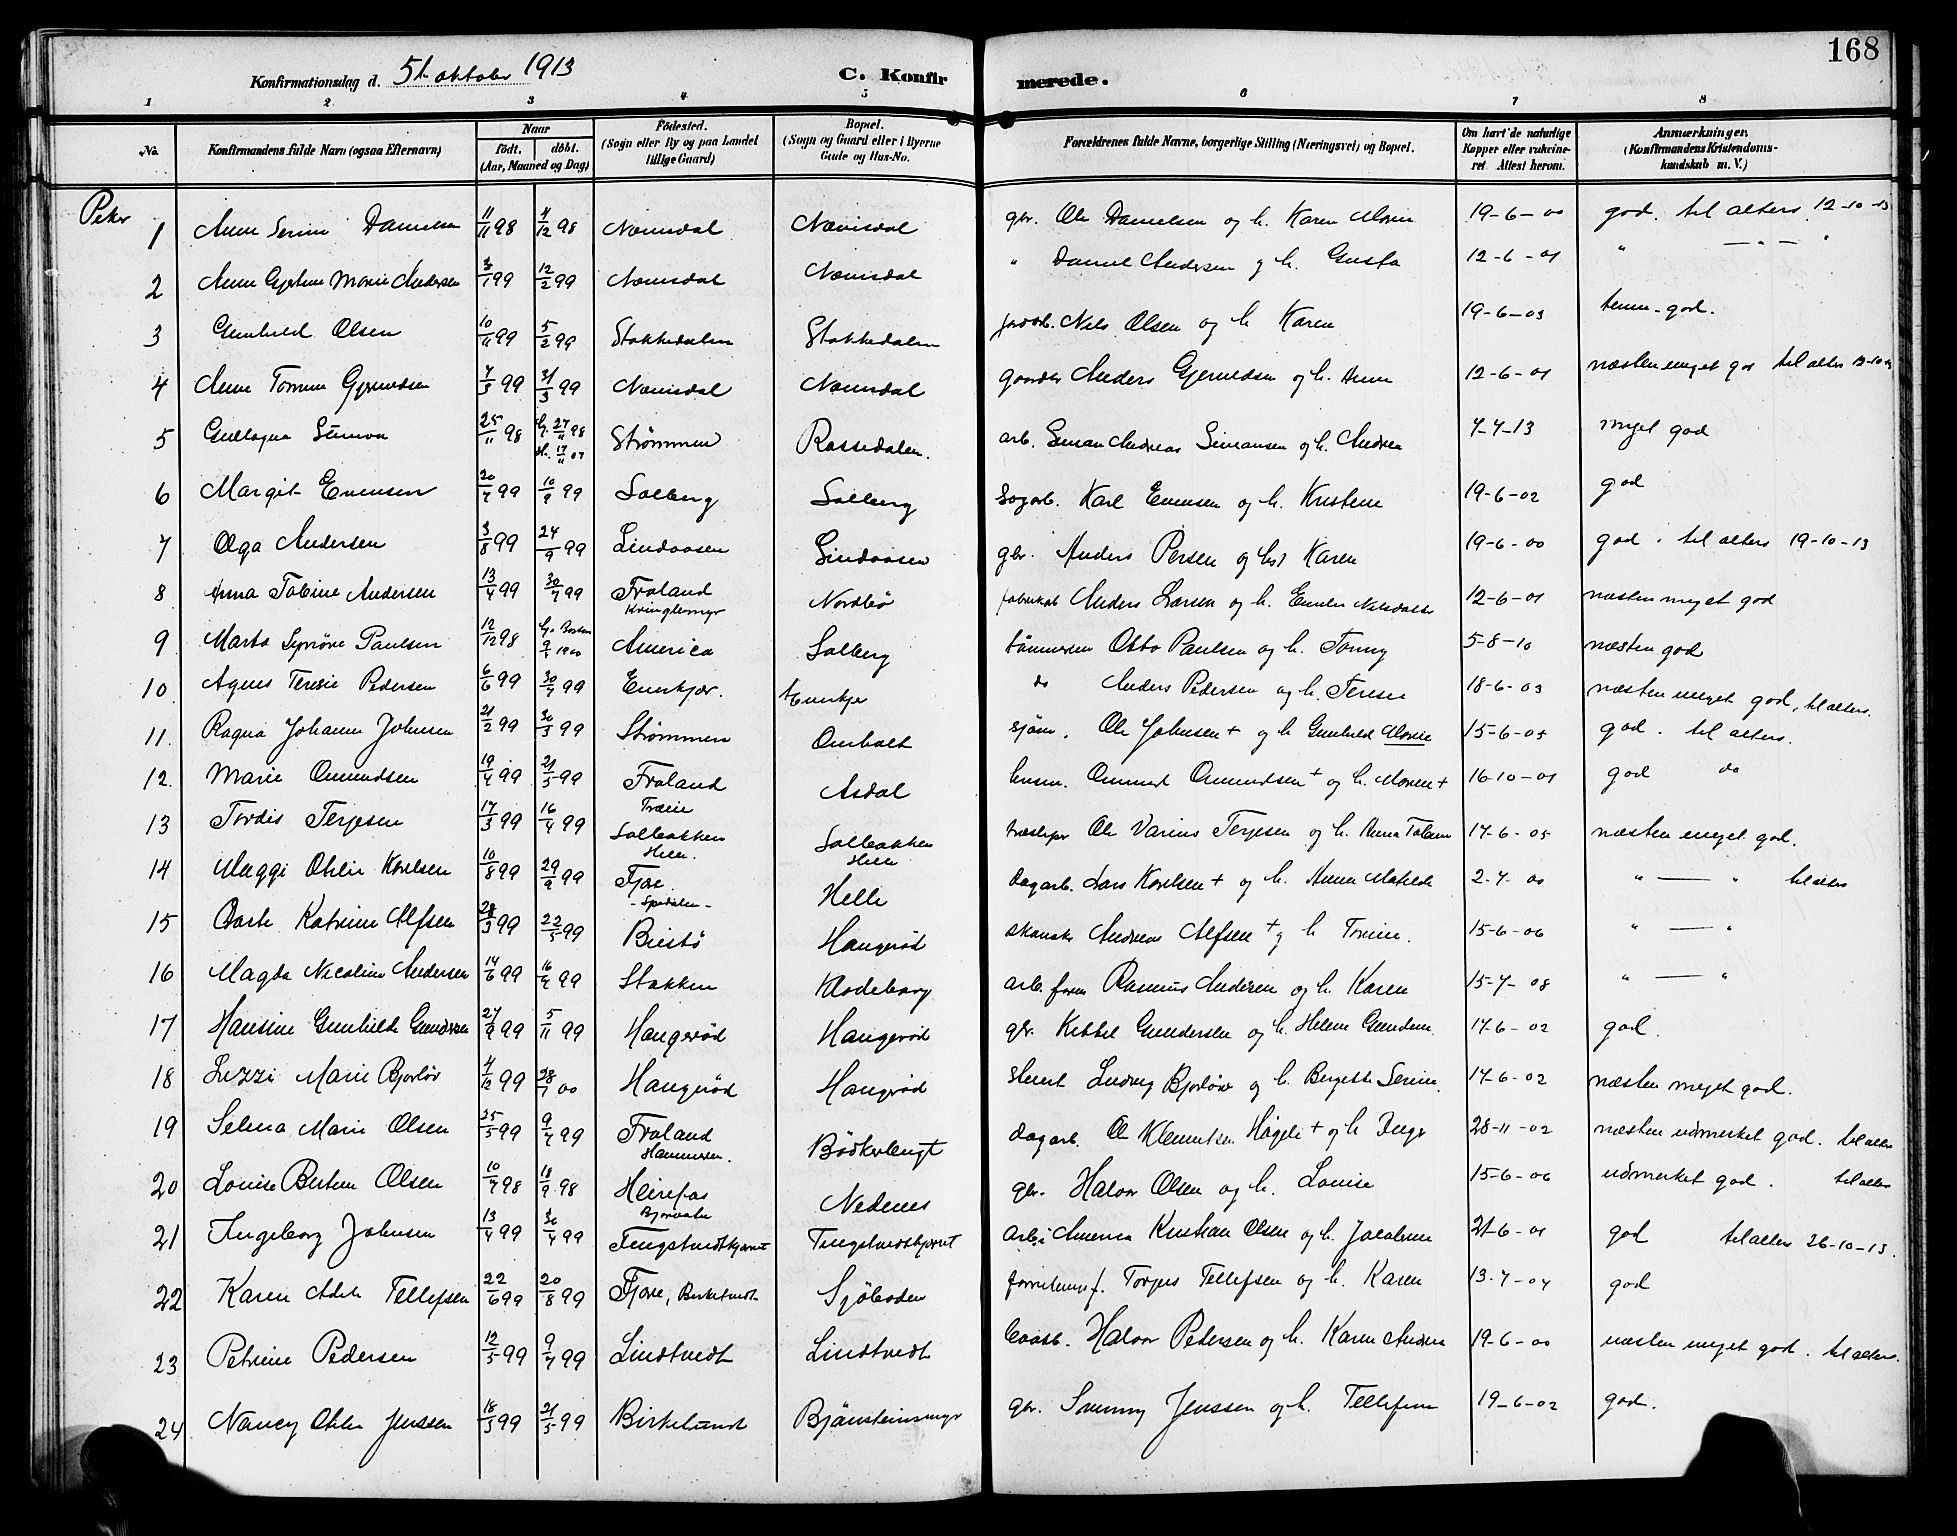 168
Konfirmationsdag d. 5te oktober 1913 C. Konfirmerede.
1 2 3 4 5 6 7 8
No. Konfirmandens fulde Navn (ogsaa Efternavn) Naar Födt. döbt. (Aar, Maaned og Dag) Födested. (Sogn eller By og paa Landet tillige Gaard) Bopæl. (Sogn og Gaard eller i Byerne Gade og Hus-No. Forældrenes fulde Navne, borgerlige Stilling (Næringsvei) og Bopæl. Om havt de naturlige Kopper eller vakcineret Attest herom. Anmærkninger. (Konfirmandens Kristendomskundskab m. V.)
1 Anne Serine Danielsen 11/11 98 4/12 98 Næmisdal Næmisdal gbr. Ole Danielsen og h. Karen Maren 19-6-00 god. til alters 12-10-13
2 Anne Gjertine Marie Andersen 3/1 99 12/2 99 Næmisdal Næmisdal " Daniel Andersen og h. Gusta 12-6-01 " — " — "
3 Gunhild Olsen 10/11 99 5/2 99 Stokkedalen Stokkedalen Nils Olsen og h. Karen 19-6-03 temm. god.
4 Anne Tomine Gjermundsen 7/3 99 31/3 99 Næmisdal Næmisdal Anders Gjermundsen og h. Anne 12-6-01 næsten meget god til alters
5 Gudlaqua 25/11 98 h. 27/11 98 k. 17/11 07 Strømmen Rossedalen. arb. Simon Andreas Simonsen og h. Andrea 4-4-13 meget god
6 Margit Evensen 20/7 99 10/9 99 Solberg Solberg Sagarb. Karl Evensen og h. Kristine 19-6-02 god
7 Olga Andersen 3/8 99 24/9 99 Lindaasen Lindaasen gbr. Anders Persen og Karen 19-6-00 god. til alters 19-10-13
8 Anna Tobine Andersen 13/4 99 30/7 99 Froland Kringlemyr Nordbö Anders Larsen og h. Emilie Nilsdatter 12-6-01 næsten meget god
9 Marta Synöve Paulsen 12/12 98 1900 America Solberg tömmerm Otto Paulsen og h. Tonny 5-8-10 næsten god
10 Agnes Teresie Pedersen 6/6 99 30/7 99 Enerkjær. do Anders Pedersen og h. Terese 18-6-03 næsten meget god, til alters.
11. Ragna Johanne Johnsen 21/2 99 30/3 99 Strømmen Omholt sjöm. Ole Johnsen + og h. Gunhild Marie 15-6-05 god. til alters.
12. Marie Omundsen 19/4 99 21/5 99 Froland Træeie Asdal husm. Ommund Omundsen + og h. Maren + 16-10-01 god do
13 Tordis Terjesen 17/3 99 16/4 99 Solbakken Helle. Solbakken Helle Ole Varius Terjesen og h. Anna 17-6-05 næsten meget god.
14 Maggi Otelie Karelsen 10/8 99 29/9 99 Fjære - Spedalen - Helle Dagarb. Lars Karelsen + og h. Anna Matilde 2-7-00 " — " til alters
15 Katrine Alfsen 28/3 99 22/5 99 Biestö Haugeröd Andreas Alfsen + og h. Tomine. 15-6-06 " — "
16 Magda Nicoline Andersen 14/6 99 16/7 99 Stokken Klodeborg arb. form Rasmus Andersen og h. Karen 15-7-08 " — "
17 Hansine Gunhilde Gundersen 27/9 99 5/11 99 Haugeröd Haugeröd gbr. Kittel Gundersen og h. Helene 17-6-02 god.
18 Luzzi Marie Bjorlöv 4/12 99 28/7 00 Haugeröd Haugeröd Ludvig Bjorlöv og h. Bergette Serine. 17-6-02 næsten meget god.
19 Selma Marie Olsen 25/5 99 9/7 99 Froland Hammeren. Bödkerlengt dagarb. Ole Klemetsen Högeli + og h. Inger 28-11-02 næsten udmerket god. til alters
20 Louise Bertine Olsen 10/7 98 18/9 98 Heirefos Bjorvatn Nedenes gbr. Halvor Olsen og h. Louise 15-6-06 udmerket god. til alters
21 Ingeborg Johnsen 13/4 99 30/4 99 Tingstvedtkjæret Tingstvedtkjæret Arb. i America Kristian Olsen og h. Jacobine 21-6-01 god til alters 26-10-13.
22 Karen Adele Tellefsen 22/6 99 20/8 99 Fjære, Birketvedt Sjöboden Torjus Tellefsen og h. Karen 13-7-04 god
23 Petrine Pedersen 12/5 99 9/7 99 Lindtvedt Lindtvedt Halvor Petersen og h. Karen Andrea 19-6-00 næsten meget god. til alters.
24 Nancy Otelie Jenssen 18/3 99 21/5 99 Birkelundt Bjönsteinsmyr gbr. Jenssen og h. Tellefine 19-6-02 god.